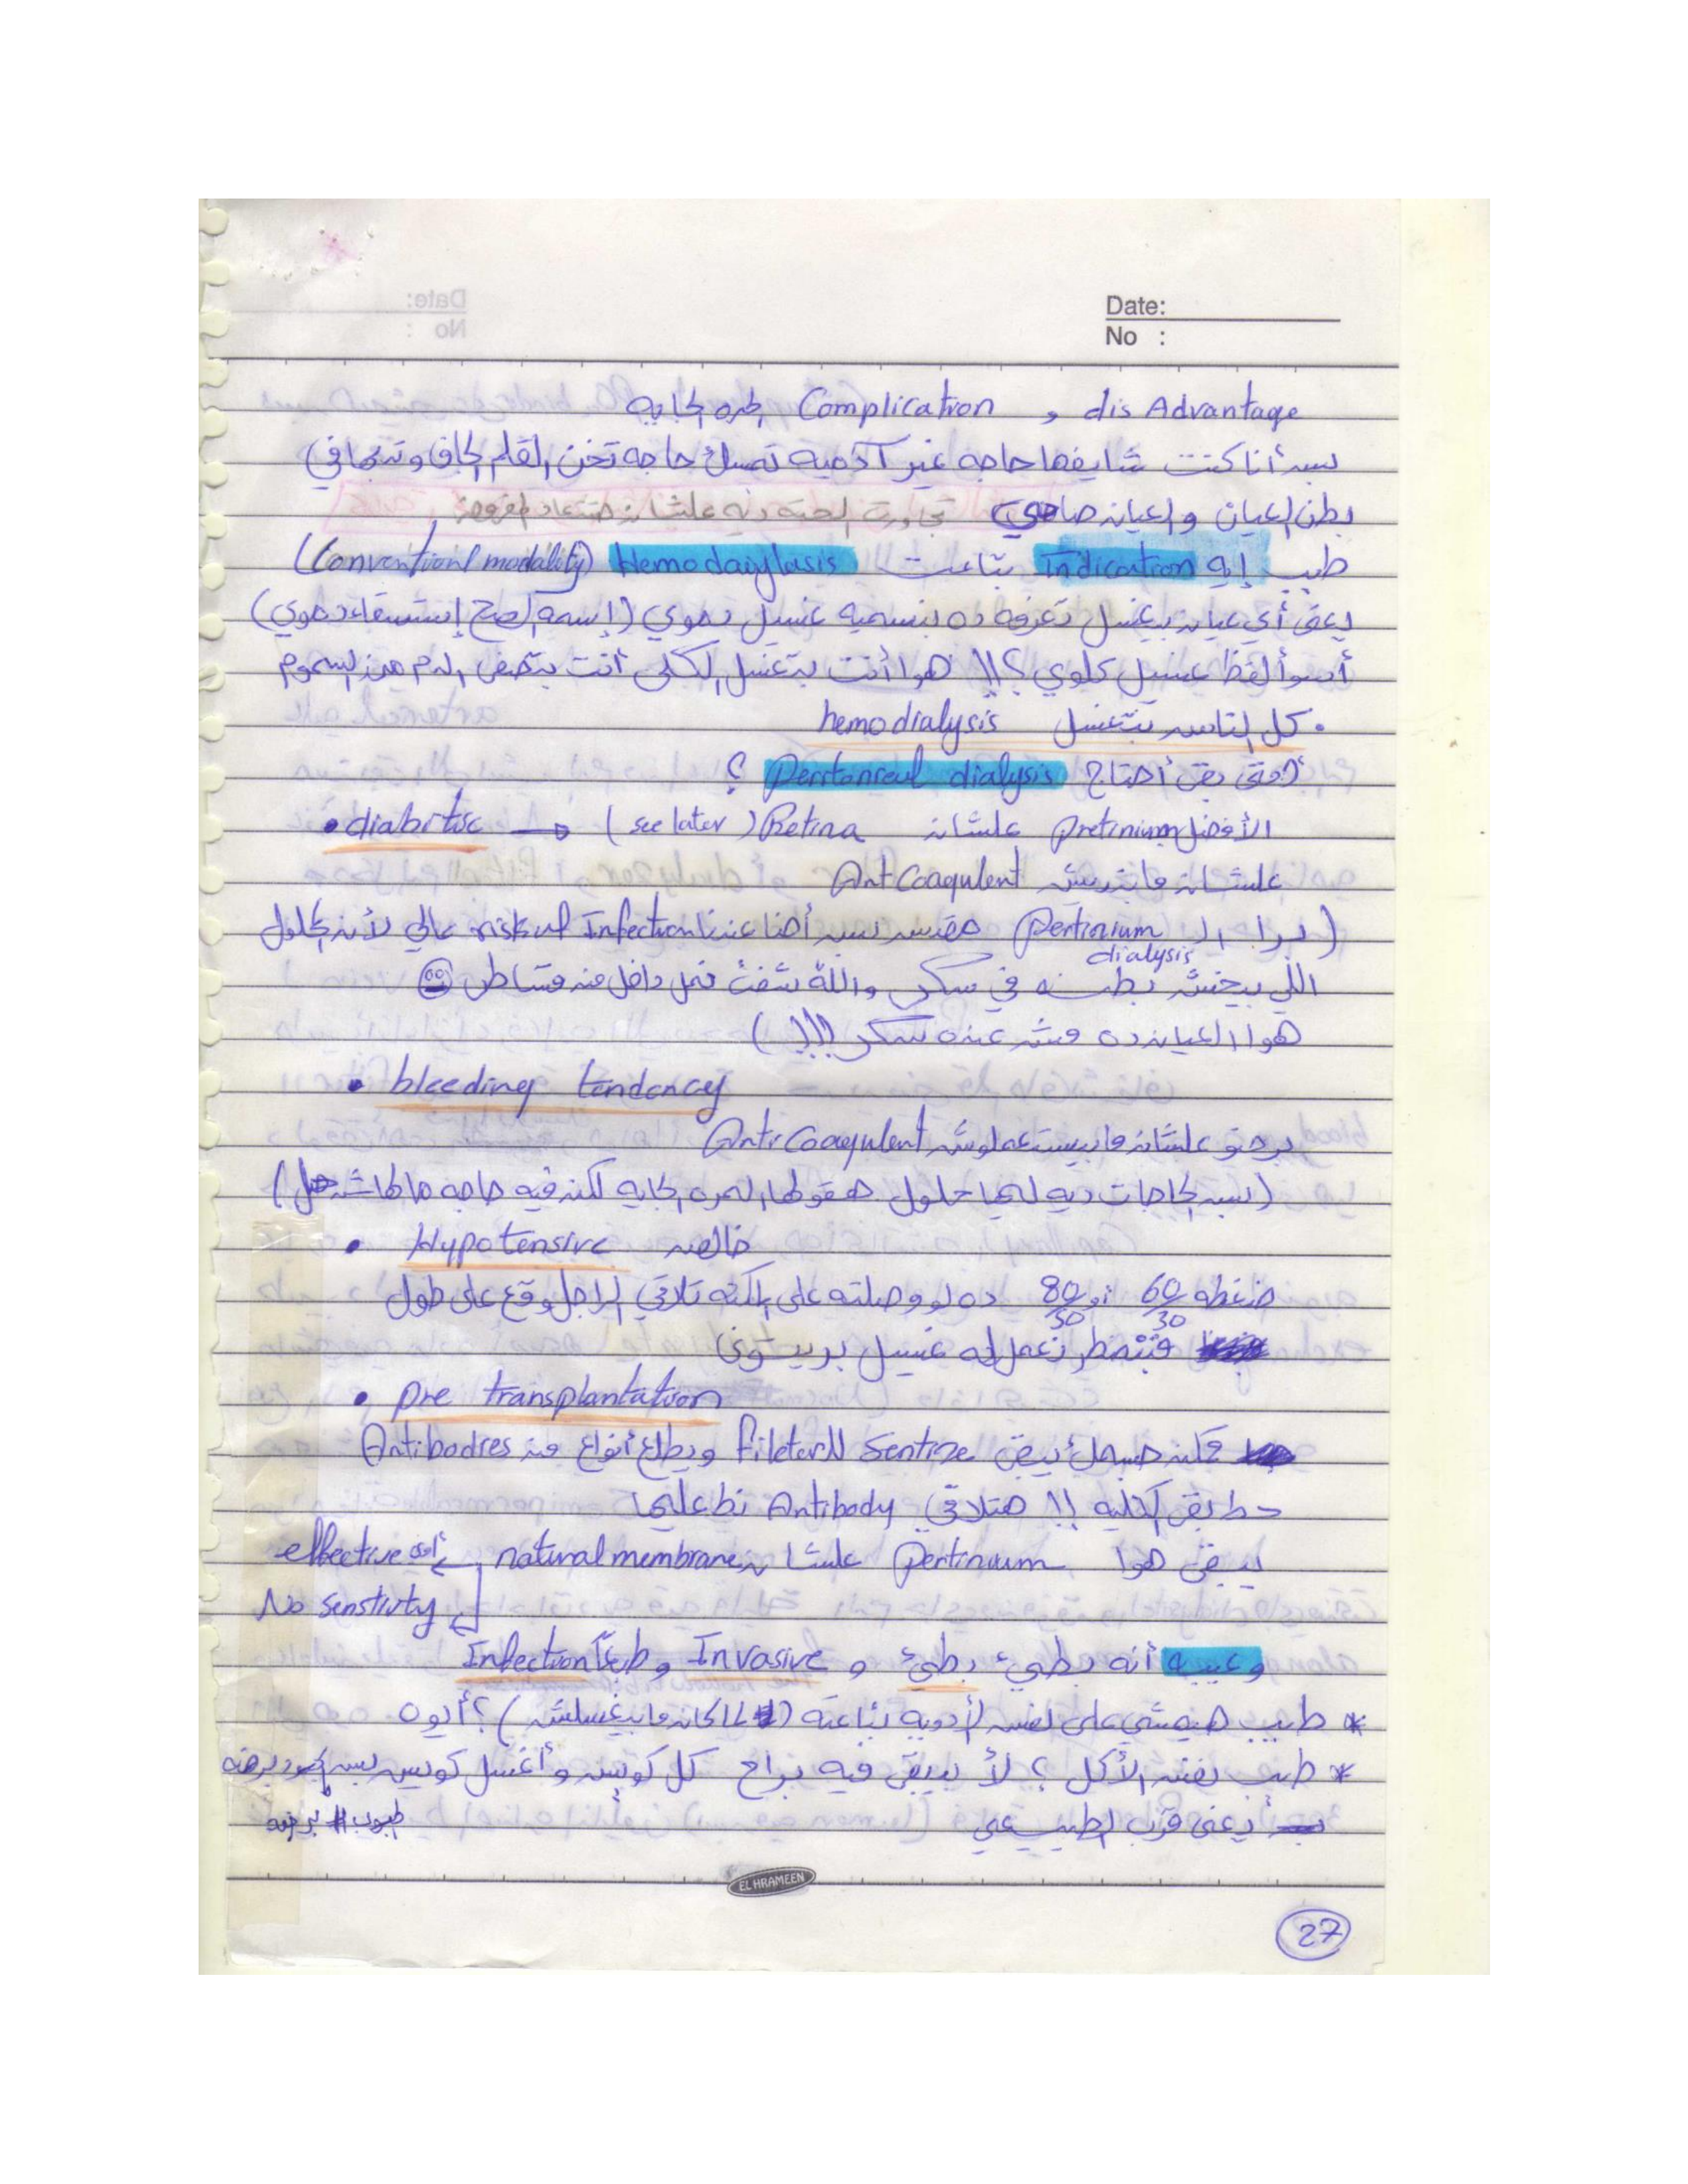 Date:
No :
dis Advantage و Complication المره الجايه
بس أنا كنت شايفها حاجه غير آدميه تمسك حاجه تخن القلم الجاف وتدخلها في
بطن العيان والعيان صاحي تجاوزت الحته ديه علشان متتعاد
طيب إيه Indication بتاعت Hemodaiylasis (Conventional modality)
يعني أي عيان بيغسل تعرفه ده بنسميه غسيل دموي (إسمه الصح إستسقاء دموي)
أسوأ لفظ غسيل كلوي ؟!! هوا أنت بتغسل الكلى أنت بتصفي الدم من السموم
• كل الناس بتتغسل hemodialysis
أمتى بقى أحتاج Peritoneal dialysis ؟
• diabitic → (see later) Retina الأفضل Pretinium علشان
علشان مابنديش AntCoagulent
(برا الـ Pertinium dialysis مقدس بس أحنا عندنا risk of Infection عالي لأن المحلول
اللي بيخش بطنه في سكر والله شفت نمل داخل من
هوا العيان ده مش عنده سكر !!!)
• bleeding tendency
برضو علشان مابيستعملوش AntiCoagulent
(بس الحاجات ديه ليها حلول هنقولها المره الجايه لكن فيه حاجه مالهاش حل)
• Hypotensive خالص
ضغطه 60/30 أو 80/50 ده لو وصلته على المكنه تلاقي الراجل وقع على طول
فتضطر نعمل له غسيل بريتوني
• Pre transplantation
ممكن جسمك يبقى Sentize للـ fileter ويطلع أنواع من Antibodies
حط بقى الكليه !! هتلاقي Antibody نط عليها
يبقى هوا Pertinium علشان natural membrane
أقوى effective
No senstivty
وعيبه أنه بطيء بطيء و Invasive وطبعاً Infection
* طيب هيمشي على نفس الأدويه بتاعته (لما كان مابيغسلش) ؟ أيوه
* طيب نفس الأكل ؟ لأ بيبقى فيه براح كل كويس وأغسل كويس بس
يعني قرب الطبيعي
EL HRAMEEN
27